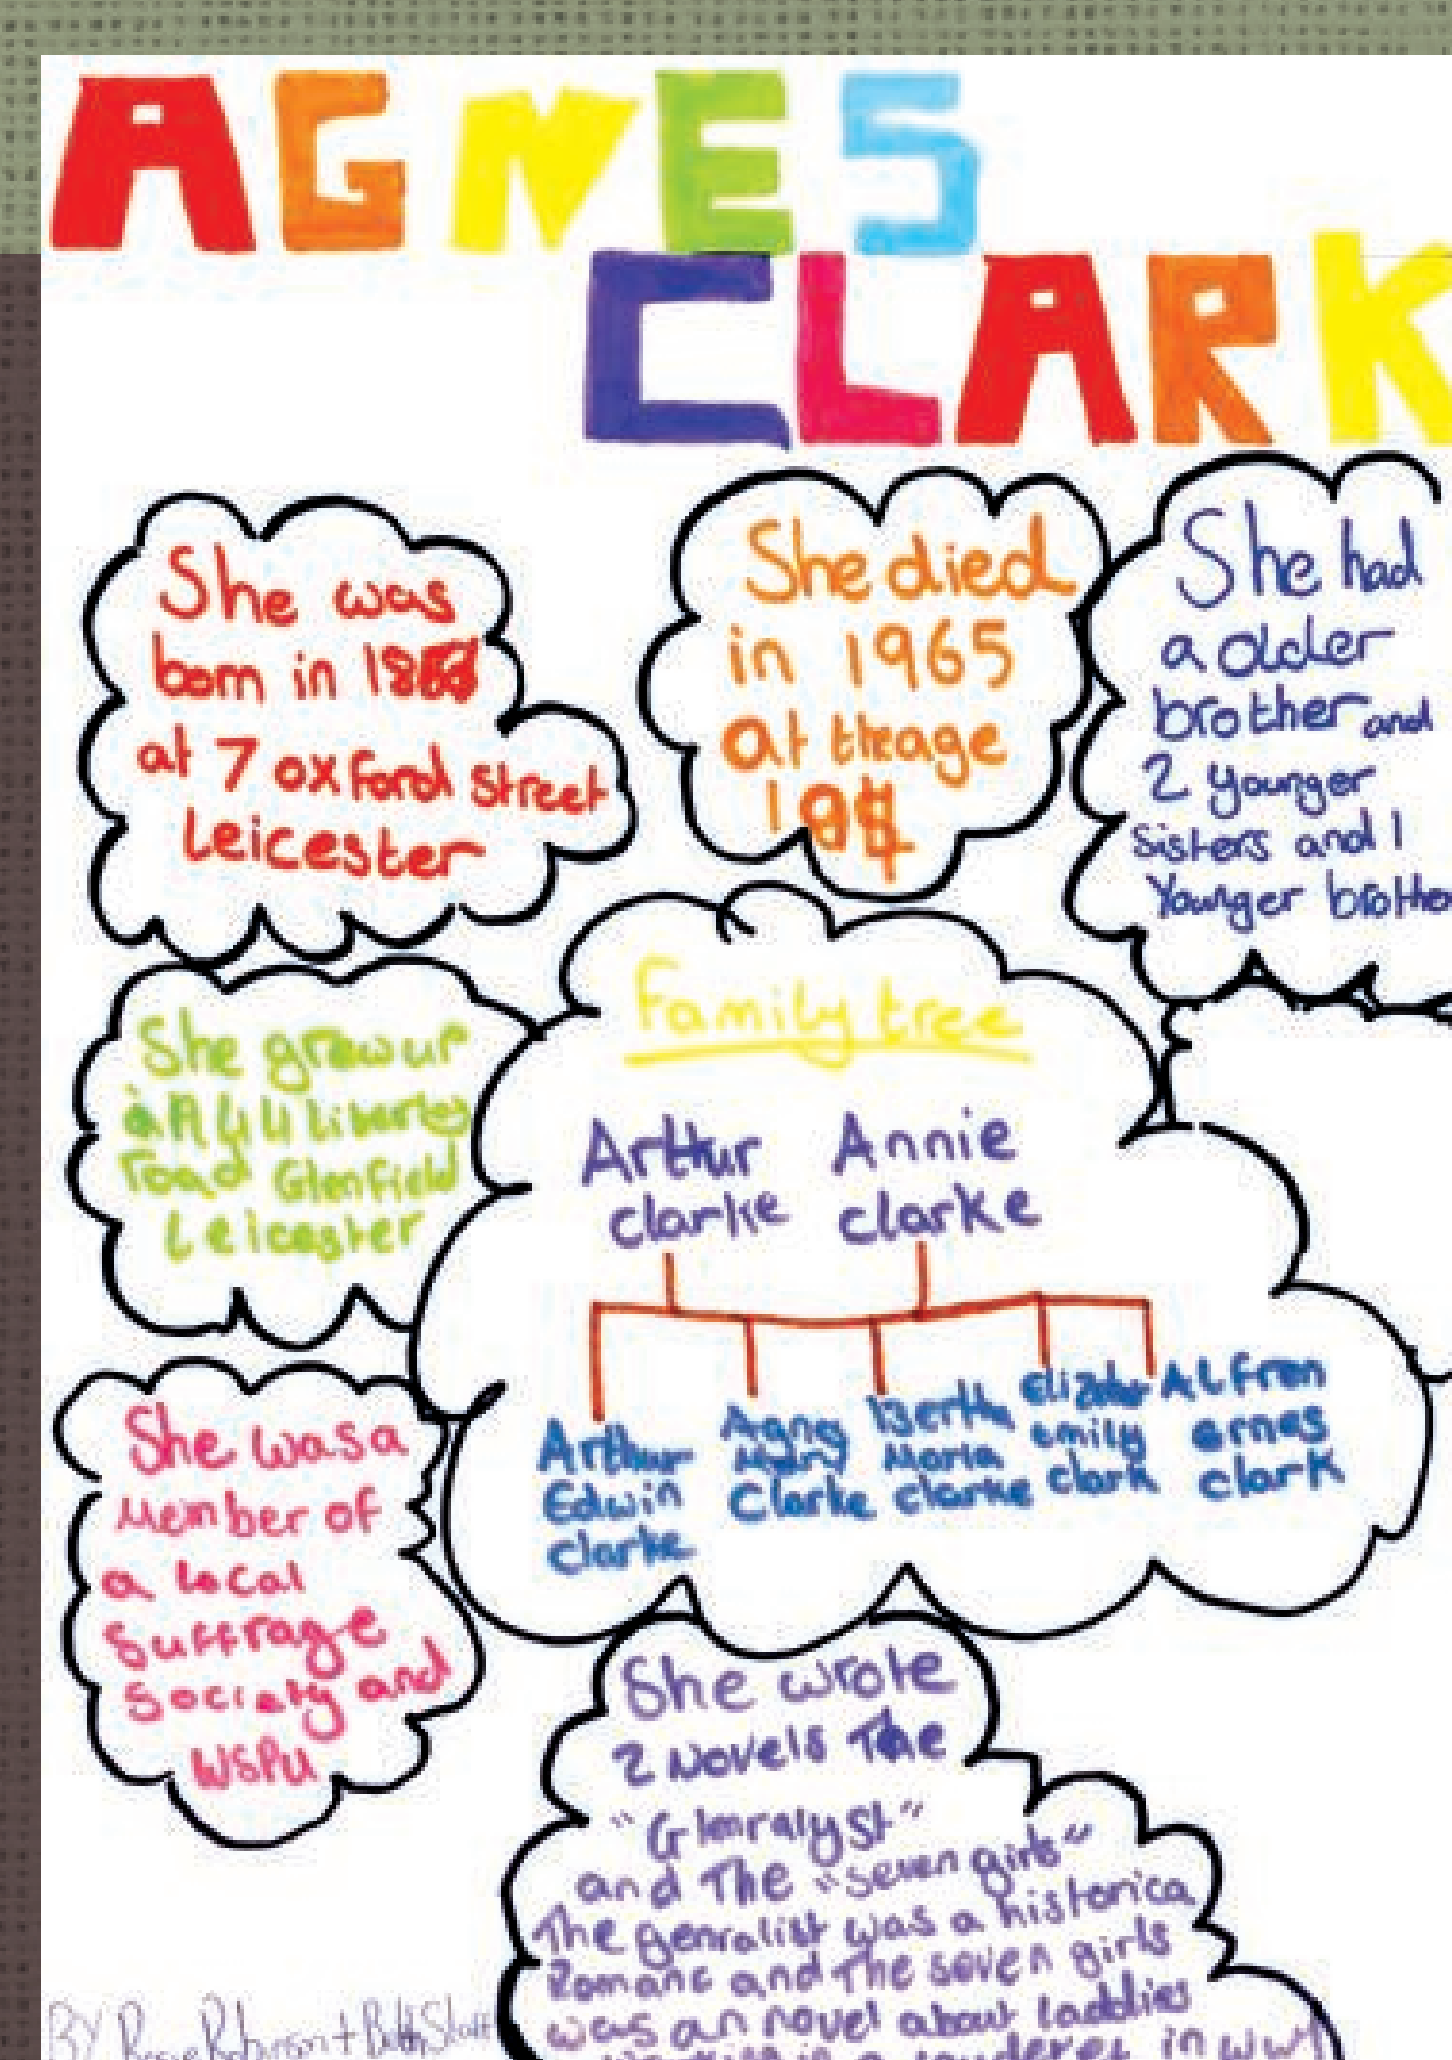 AGNES
CLARK
She was
born in
at 7 oxford street
Leicester
She died
in 1965
at the age
She had
a older
brother and
2 younger
sisters and 1
Younger brother
She grew up
44 liberty
road Glenfield
Leicester
Family tree
Arthur Annie
clarke clarke
Arthur
Edwin
clarke
Agnes
Mary
Clarke
Bertha
Maria
clarke
emily
clark
ALfren
ernes
clark
She was a
Member of
a local
Suffrage
Society and
WSPU
She wrote
2 Novels The
"Glenralyst"
and The "seven girls"
The genralist was a historica
Romanc and The seven girls
was an novel about laddies
in a in WW1
BY Robinson +